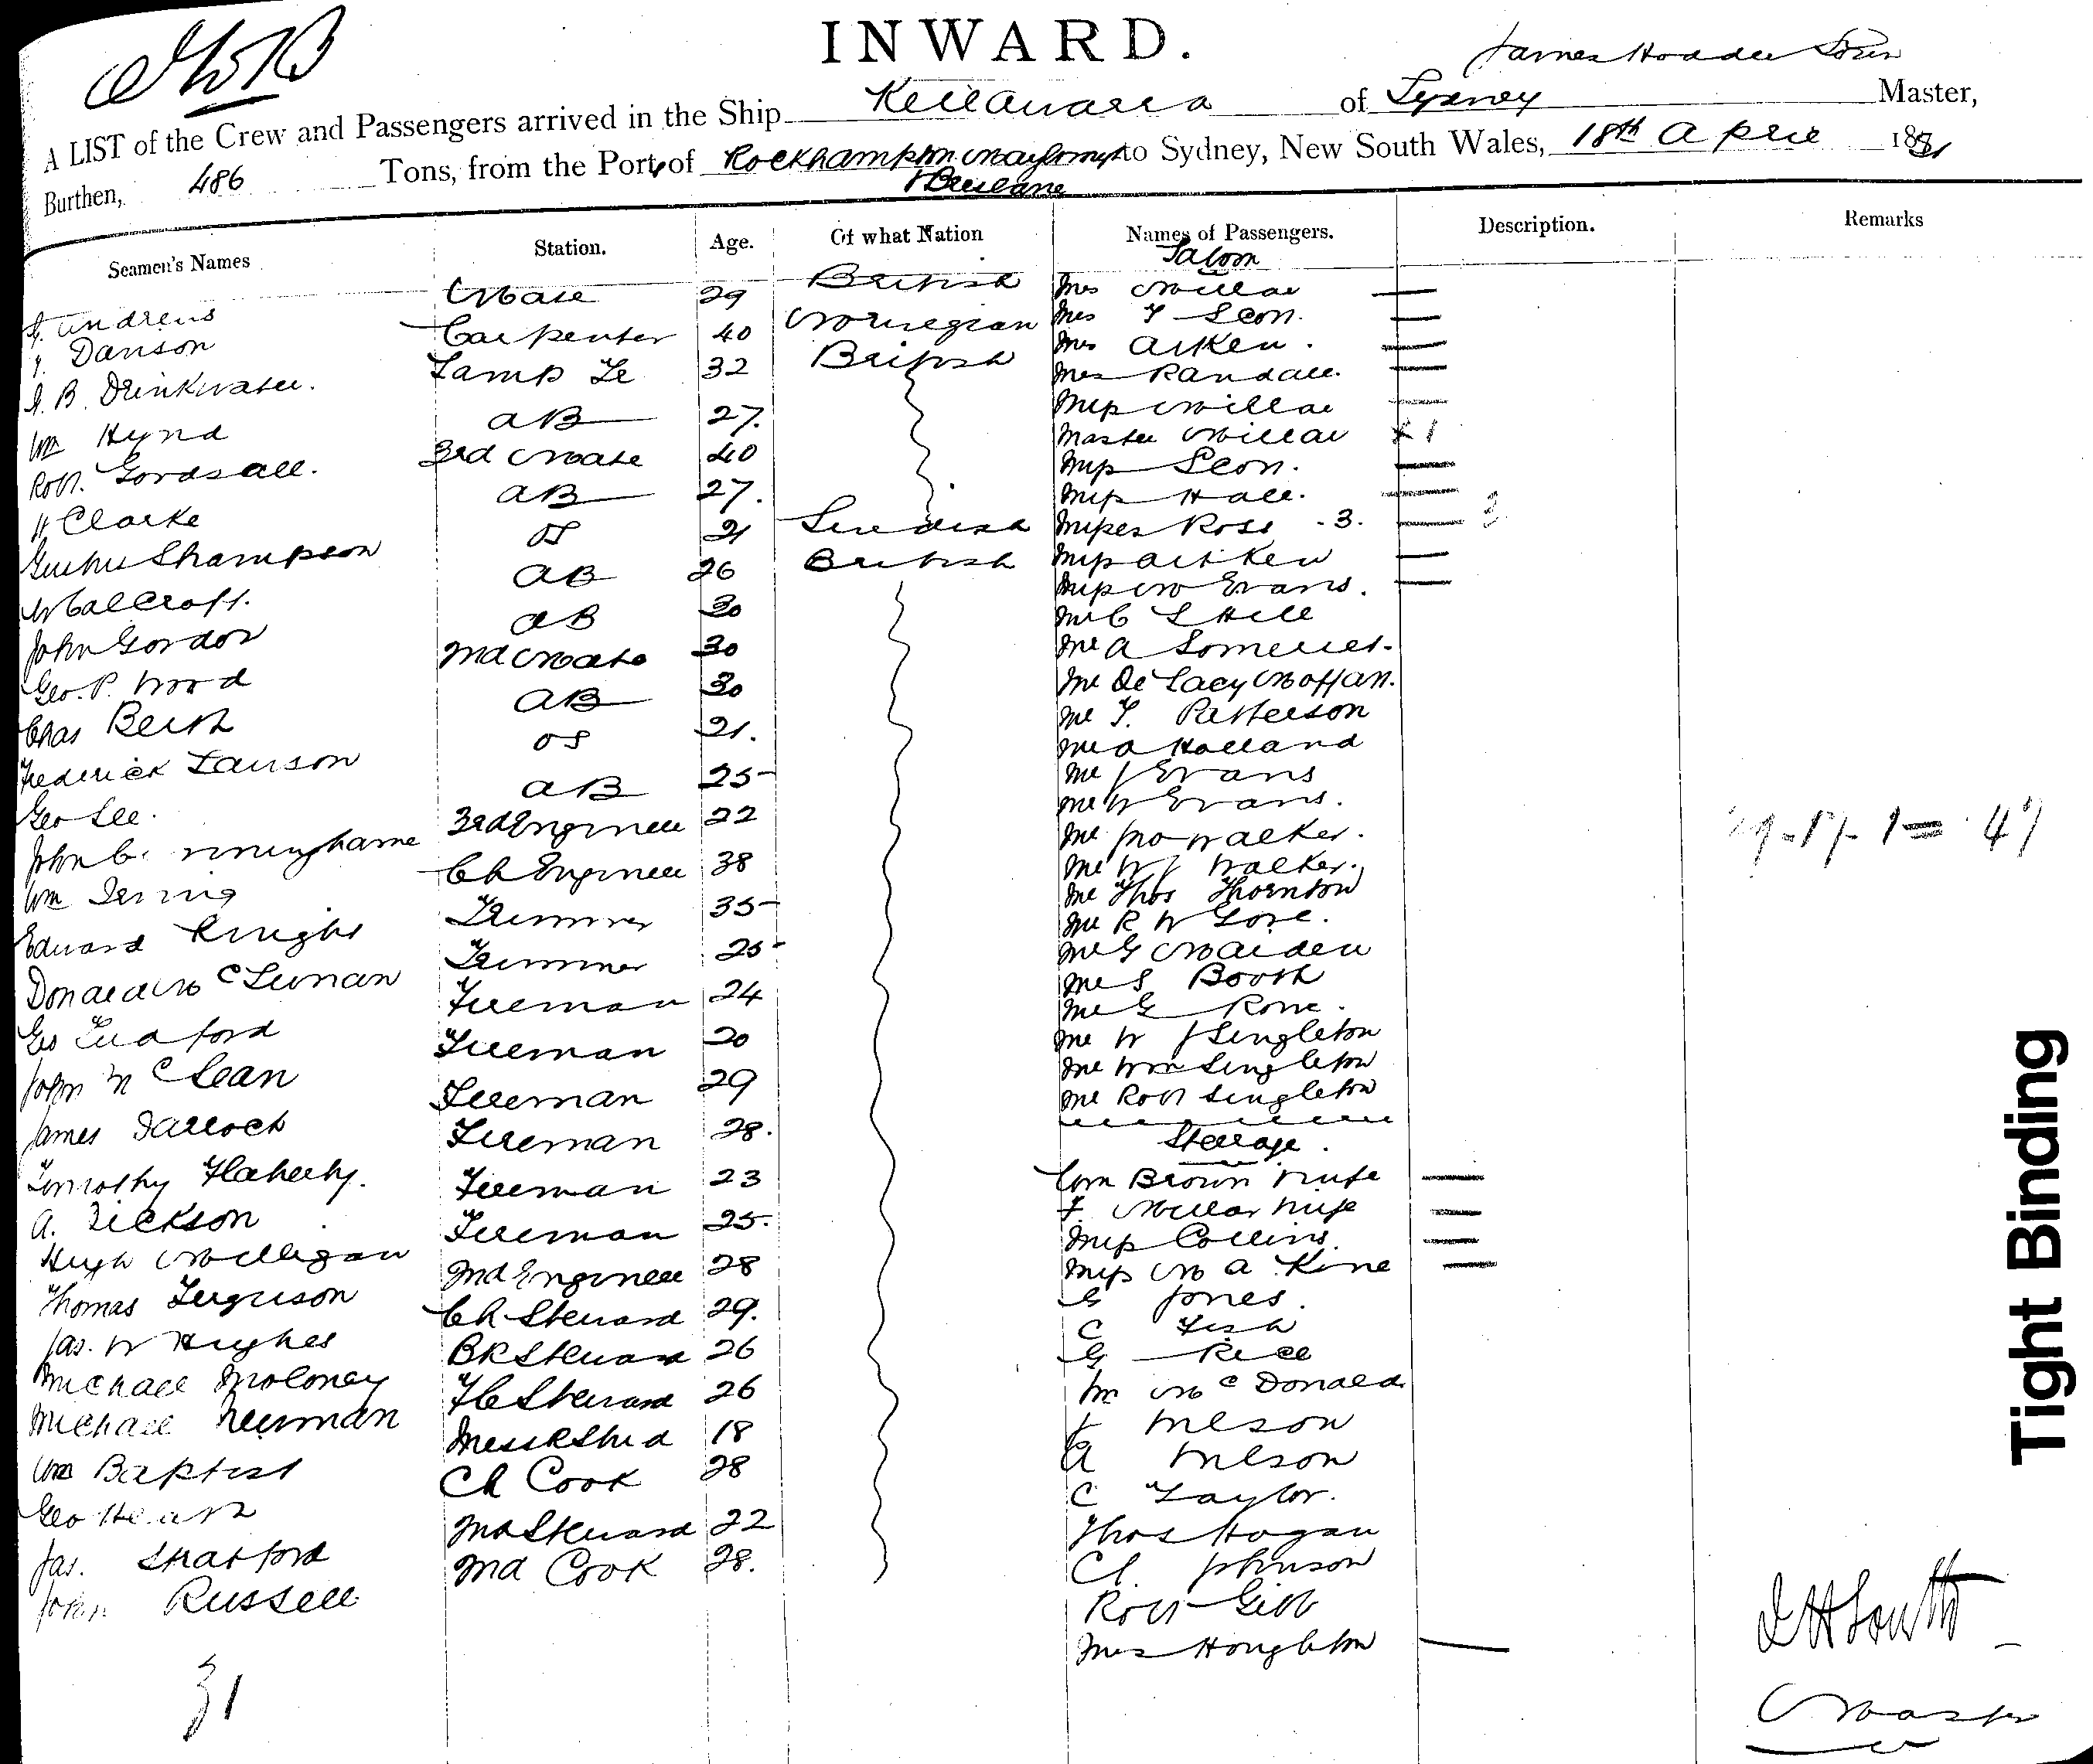 INWARD.
James Hodder
A LIST of the Crew and Passengers arrived in the Ship Keilawarra of Sydney Master,
Burthen, 486 Tons, from the Port of Rockhampton Maryboro to Sydney, New South Wales, 18th April 1881
& Brisbane
Seamen's Names Station. Age. Of what Nation Names of Passengers. Description. Remarks
Saloon
Andrews Mate 29 British Mrs Millar
Danson Carpenter 40 Norwegian Mrs Leon.
B. Drinkwater. Lamp Tr 32 British Mrs Aitken.
Wm Hynd AB 27. Mrs Randall.
Robt. Gordsall. 3rd Mate 40 Miss Millar
H Clarke AB 27. Master Millar 1
Thampson OS 21 Swedish Miss Leon.
Calcroft. AB 26 British Miss Hall.
John Gordon AB 30 Misses Ross 3.
Geo. P. Wood 2nd Mate 30 Miss Aitken
Chas AB 30 Miss M Evans.
Frederick Lawson OS 21. Mr C L Hill
Geo Lee. AB 25 Mr A Somerset.
John 3rd Engineer 22 Mr De Lacy Moffatt.
Wm Ch Engineer 38 Mr T. Patterson
Edward Knight Trimmer 35 Mr A Holland
Donald McLennan Trimmer 25 Mr J Evans
Geo Ludford Fireman 24 Mr W Evans.
John McLean Fireman 20 Mr Jno Walker.
James Darroch Fireman 29 Mr W J Walker.
Timothy Flaherty. Fireman 28. Mr Thos Thornton
A. Dickson Fireman 23 Mr R W Gore.
Hugh Milligan Fireman 25. Mr G Maiden
Thomas Ferguson 2nd Engineer 28 Mr S Booth
Jas. W Hughes Ch Steward 29. Mr G Rowe.
Michael Moloney BR Steward 26 Mr W J Singleton
Michael Newman FC Steward 26 Mr Wm Singleton
Wm Baptist Mess R Stwd 18 Mr Robt Singleton
Geo Heath Ch Cook 28 Steerage.
Jas. Stratford 2nd Steward 22 Wm Brown Wife
John Russell 2nd Cook 28. F. Millar Wife
Miss Collins.
Miss M A Kine
G Jones.
C Fish
G Rice
Wm McDonald
J Nelson
A Nelson
C Taylor.
Thos Hogan
Ch. Johnson
Robt Gibb
Mrs Houghton
31
Master
Tight Binding